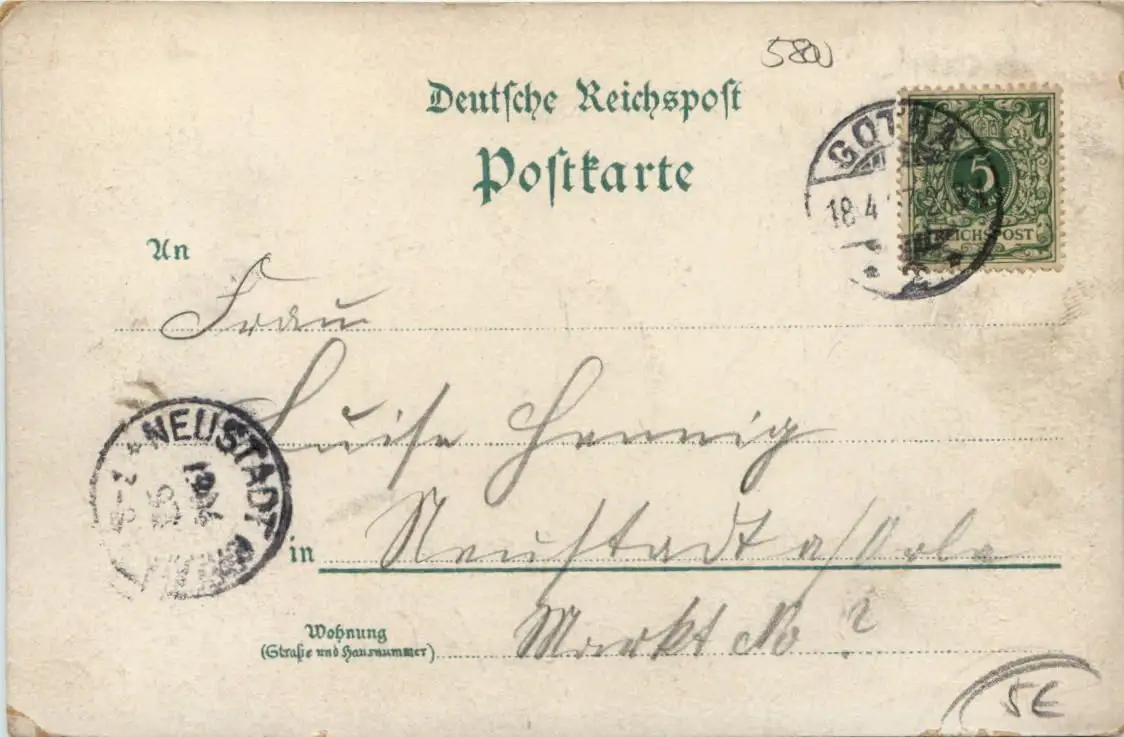 5800
Deutsche Reichspost
Postkarte
GOTHA
18.4
5
REICHSPOST
2
An
Frau
Luise Hennig
NEUSTADT
in Neustadt a/Orla
Wohnung
(Straße und Hausnummer)
Markt No ?
5E